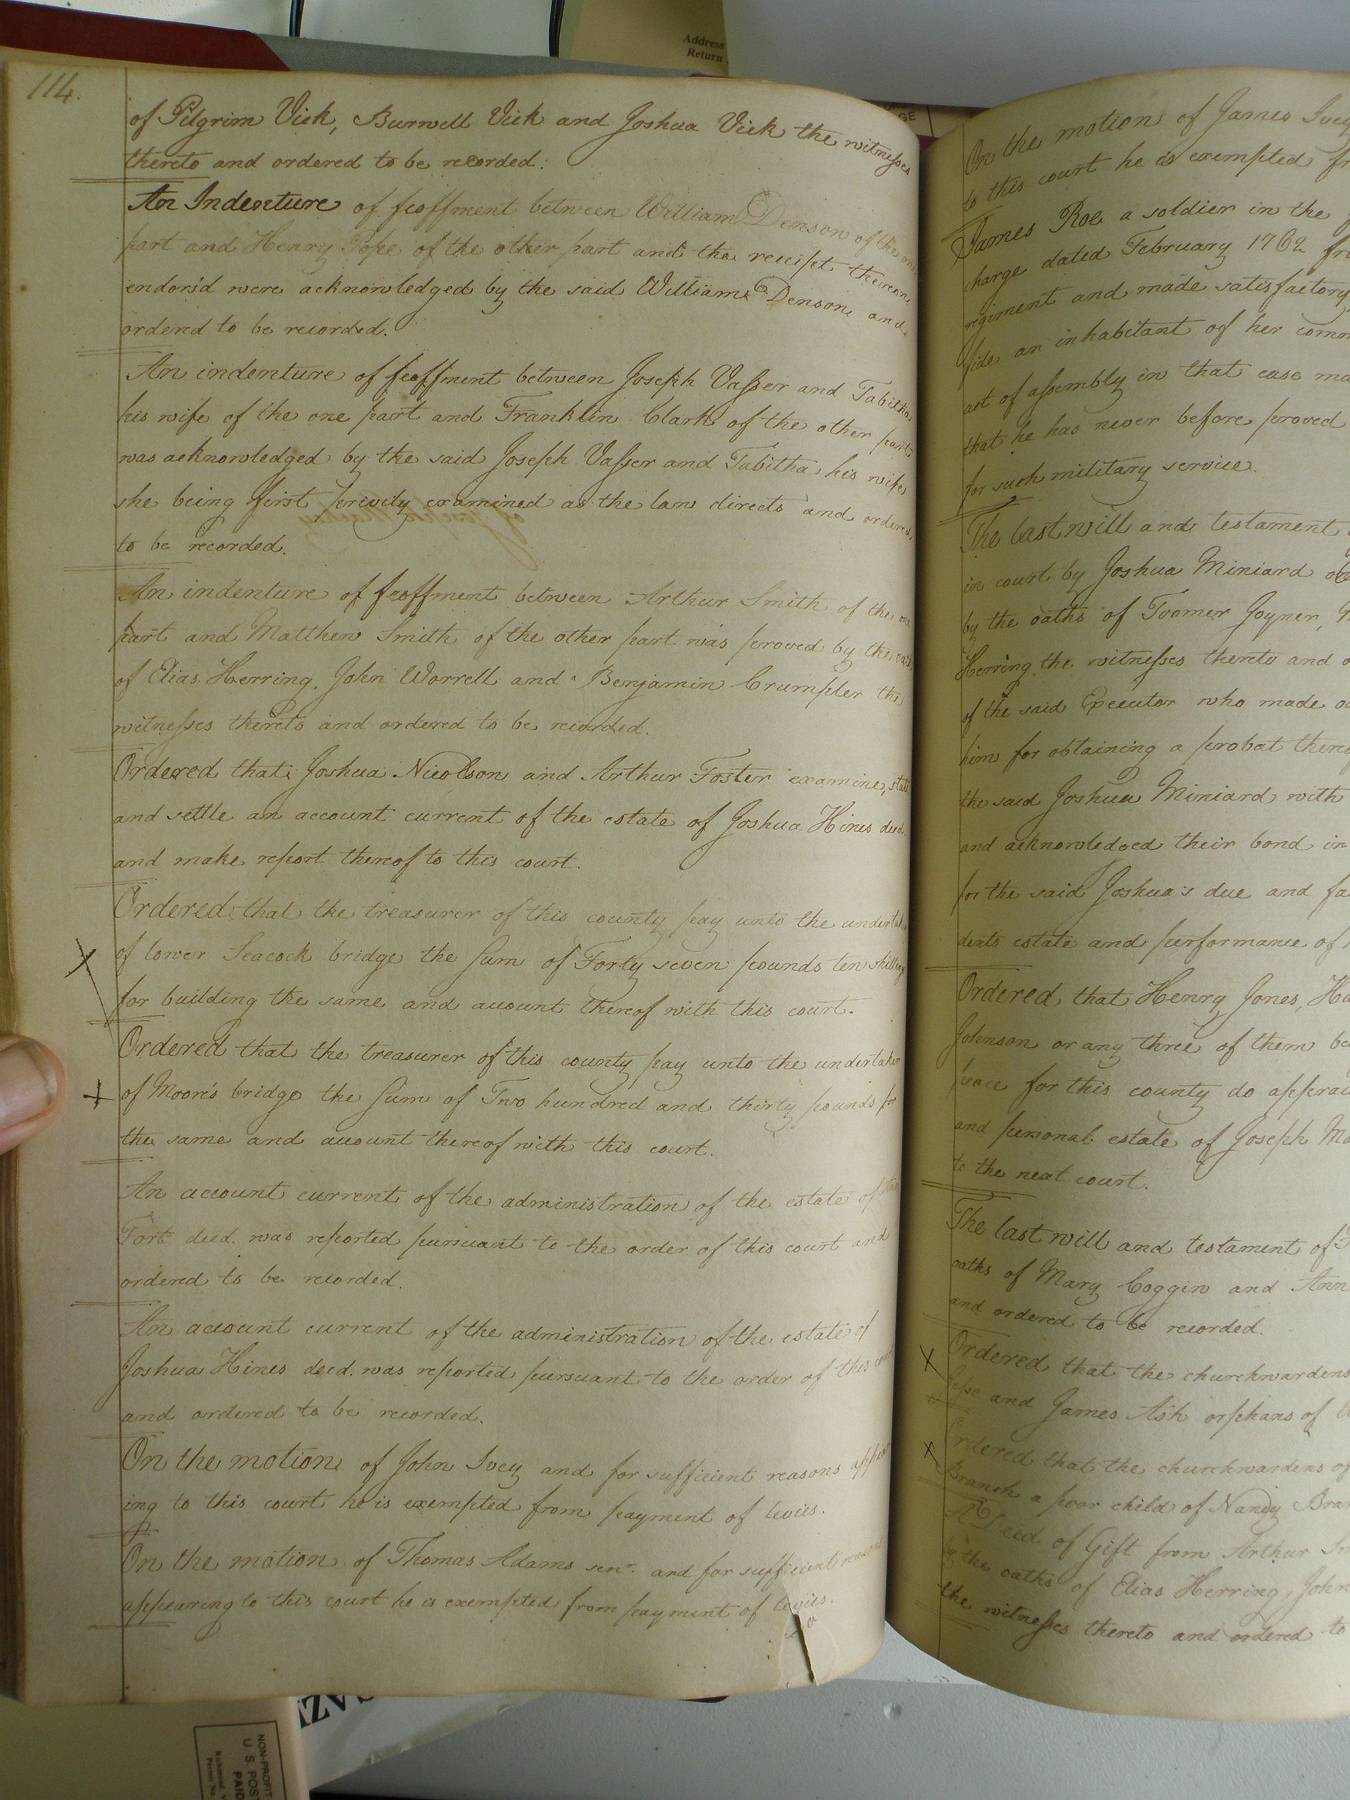 114.
of Pilgrim Vick, Burwell Vick and Joshua Vick the witnesses
thereto and ordered to be recorded.
An Indenture of feoffment between William Denson of the one
part and Henry Pope of the other part and the receipt thereon
endors'd were acknowledged by the said William Denson and
orderd to be recorded.
An indenture of feoffment between Joseph Vasser and Tabitha
his wife of the one part and Franklin Clark of the other part
was acknowledged by the said Joseph Vasser and Tabitha his wife
she being first privily examined as the law directs and ordered
to be recorded.
An indenture of feoffment between Arthur Smith of the one
part and Matthew Smith of the other part was proved by the oaths
of Elias Herring, John Worrell and Benjamin Crumpler the
witnesses thereto and ordered to be recorded.
Ordered that Joshua Nicolson and Arthur Foster examine, state
and settle an account current of the estate of Joshua Hines decd.
and make report thereof to this court.
Ordered that the treasurer of this county pay unto the undertaker
of lower Seacock bridge the sum of Forty seven pounds ten shillings
for building the same and account thereof with this court.
Ordered that the treasurer of this county pay unto the undertaker
of Moore's bridge the sum of Two hundred and thirty pounds for
the same and account thereof with this court.
An account current of the administration of the estate of
Fort decd. was reported pursuant to the order of this court and
ordered to be recorded.
An account current of the administration of the estate of
Joshua Hines decd. was reported pursuant to the order of this court
and ordered to be recorded.
On the motion of John Ivey and for sufficient reasons appear
ing to this court he is exempted from payment of levies.
On the motion of Thomas Adams senr. and for sufficient reasons
appearing to this court he is exempted from payment of levies.
On the motion of James Ivey
to this court he is exempted
James Roe a soldier in the
charge dated February 1762
regiment and made satisfactory
fide an inhabitant of her
act of assembly in that case
that he has never before proved
for such military service.
The last will and testament
in court by Joshua Miniard
by the oaths of Toomer Joyner,
Herring the witnesses thereto and
of the said Executor who made
him for obtaining a probat
the said Joshua Miniard with
and acknowledged their bond in
for the said Joshua's due and
dents estate and performance of
Ordered that Henry Jones,
Johnson or any three of them
peace for this county do
and personal estate of Joseph
to the next court.
The last will and testament of
oaths of Mary Coggin and Ann
and ordered to be recorded.
Ordered that the churchwardens
Jesse and James Ash orphans of
Ordered that the churchwardens of
Branch a poor child of Nancy
A Deed of Gift from Arthur
by the oaths of Elias Herring, John
the witnesses thereto and ordered to
Address
Return
NON-PROFIT
U. S. POST
PAID